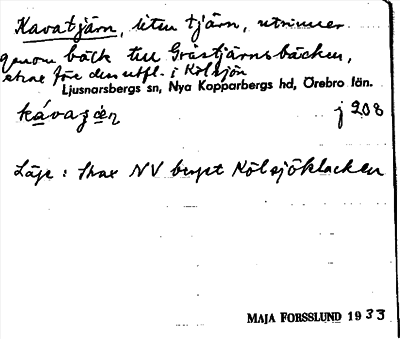 Kavatjärn, liten tjärn, utrinner
genom bäck till Gråstjärnsbäcken,
strax före dess utfl. i Kölsjön
Ljusnarsbergs sn, Nya Kopparbergs hd, Örebro län.
kávaჳæ̀n j 208
Läge: Strax NV berget Kölsjöklacken
MAJA FORSSLUND 1933